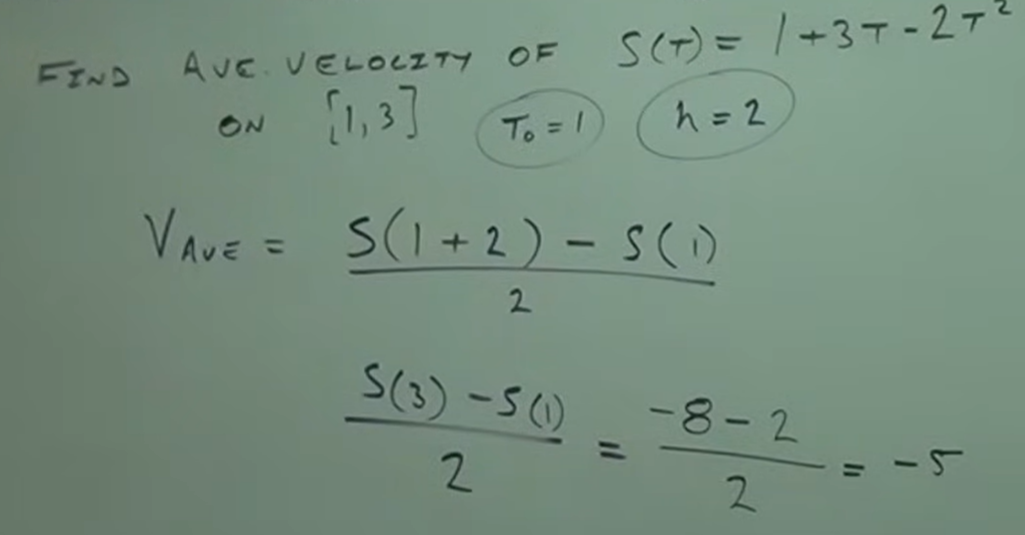 FIND AVE. VELOCITY OF S(T) = 1 + 3T - 2T²
ON [1, 3] T₀ = 1 h = 2
V_AVE = S(1 + 2) - S(1) / 2
S(3) - S(1) / 2 = -8 - 2 / 2 = -5